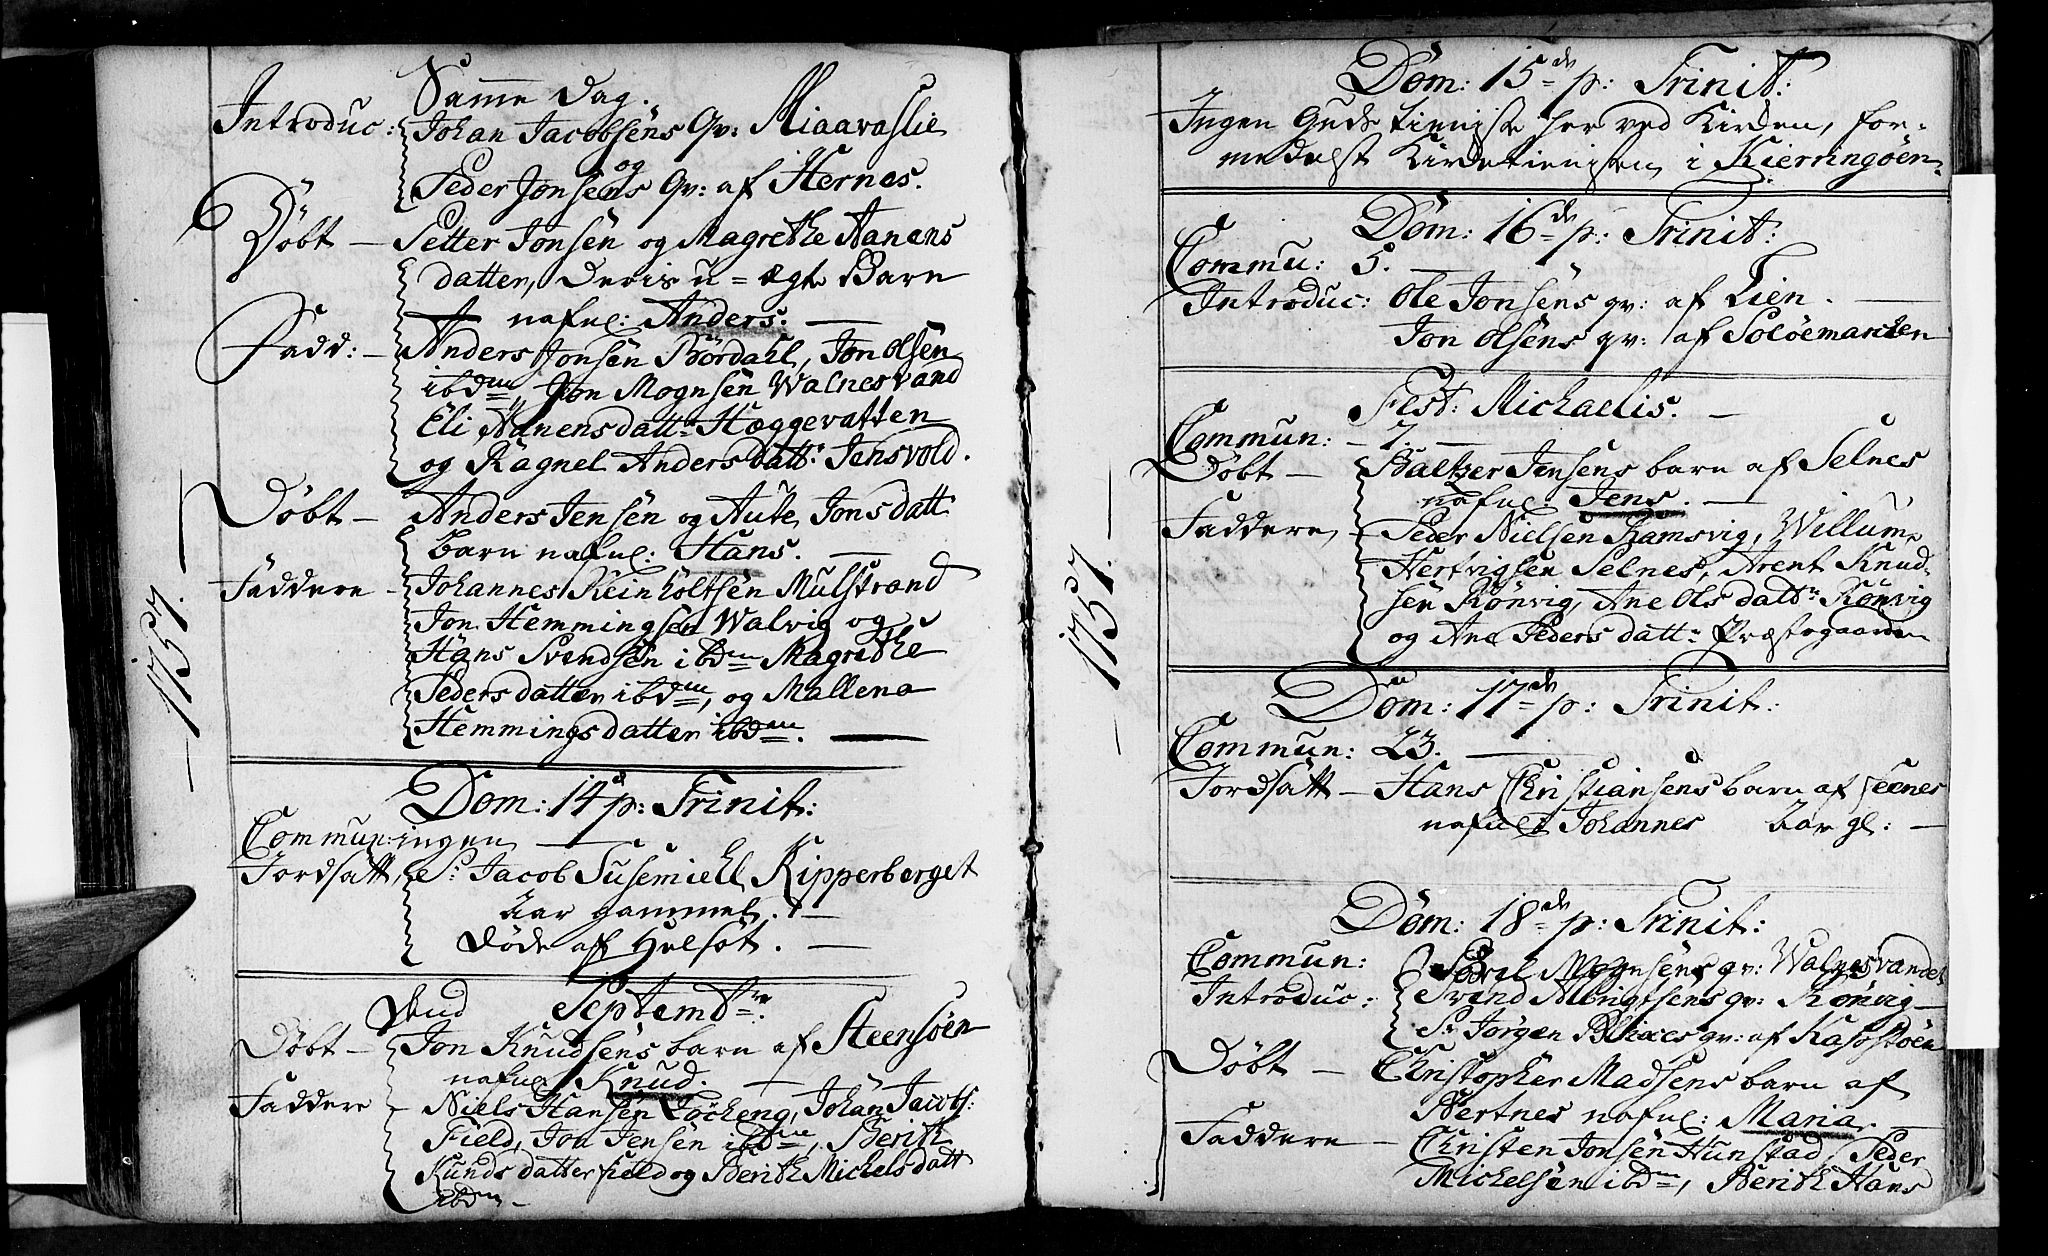 Samme Dag.
Introduc: Johan Jacobsens Qv: Miaavaslie
og
Peder Jonsens Qv: af Hernes.
Døbt – Petter Jonsen og Magrethe Aanens
datter, Deris u=ægte Barn
nafnl: Anders.
Fadd: – Anders Jonsen Børdahl, Jon Olsen
ibdm, Jon Mognsen Walnesvand
Eli Aanensdattr Hæggevatten
og Ragnel Andersdattr: Jensvold.
Døbt – Anders Jensen og Aute Jonsdatt
barn nafnl: Hans.
Faddere – Johannes Reinholtsen Mulstrand
Jon Hemmingsen Walvig og
Hans Svendsen ibdm Magrethe
Pedersdatter ibdm, og Mallena
Hemmingsdatter ibdm.
1757.
Dom: 14 p: Trinit:
Commun: ingen
Jordsatt, Sr Jacob Susemiehl Kipperberget
Aar gammel.
Døde af Hulsot.
Septembr.
Døbt – Jon Knudsens barn af Steensøen
nafnl. Knud.
Faddere – Niels Hansen Løcheng, Johan Jacobs:
Field, Jon Jensen ibdm, Berith
Kundsdatter field og Berith Michelsdatt
ibdm –
1757.
Dom: 15de p: Trinit:
Ingen Guds tieniste her ved Kirken, for-
medelst Kirketienisten i Kierringøen.
Dom: 16de p: Trinit:
Commu: 5.
Introduc: Ole Jonsens qv: af Lien.
Jon Olsens qv: af Soløemarken
Fest: Michaelis.
Commun: – 7.
Døbt – Baltzer Jensens barn af Selnes
nafnl. Jens.
Faddere, – Peder Nielsen Ramsvig, Willum
Hertvigsen Selnes, Arent Knud-
sen Rønvig, Ane Olsdattr Rønvig
og Ane Pedersdattr: Præstegaarden
Dom: 17de p: Trinit:
Commun: 23.
Jordsatt – Hans Christiansens barn af
nafnl Johannes Aar gl:
Dom: 18de p: Trinit:
Commun:
Mognsens qv: Walnesvandet
Introduc: Svend Albrigtsens qv: Rønvig
Sr Jørgen Blixes qv: af
Døbt – Christopher Madsens barn af
Bertnes nafnl: Maria.
Faddere – Christen Jonsen Hunstad, Peder
Michelsen ibdm, Berith Hans